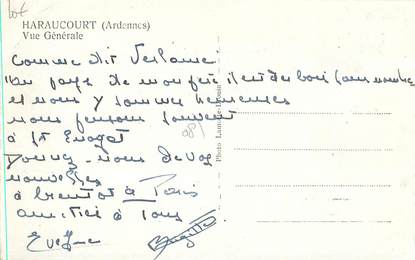 HARAUCOURT (Ardennes)
Vue Générale
Comme dit Verlaine
"Au pays de mon père il est des bois sans nombre
et nous y sommes heureuses
nous pensons souvent
à St Enogat
Donnez-nous de vos
nouvelles
à bientôt à Paris
amitiés à tous
Evelyne Brigitte